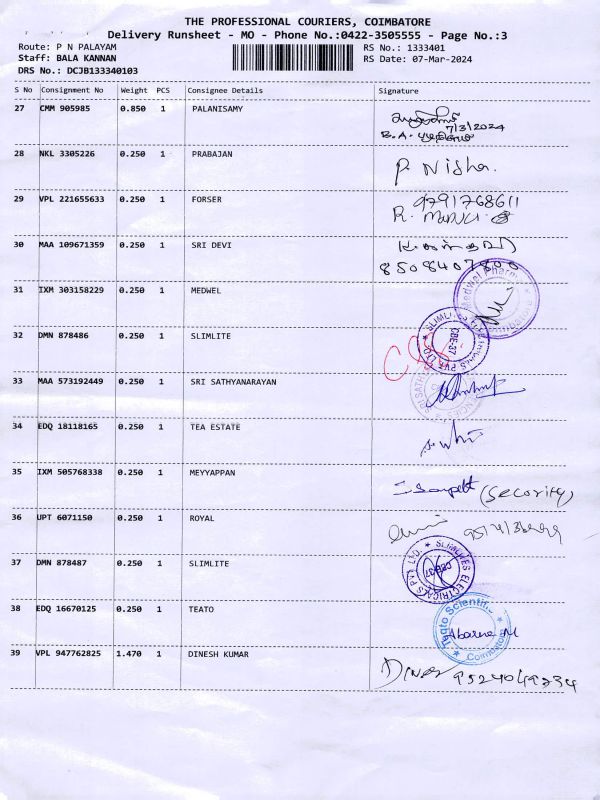 THE PROFESSIONAL COURIERS, COIMBATORE
Delivery Runsheet - MO - Phone No.:0422-3505555 - Page No.:3
Route: P N PALAYAM RS No.: 1333401
Staff: BALA KANNAN RS Date: 07-Mar-2024
DRS No.: DCJB133340103
S No Consignment No Weight PCS Consignee Details Signature
27 CMM 905985 0.850 1 PALANISAMY
7/3/2024
28 NKL 3305226 0.250 1 PRABAJAN P. Nisha.
29 VPL 221655633 0.250 1 FORSER 9791768611
30 MAA 109671359 0.250 1 SRI DEVI
8508407800
31 IXM 303158229 0.250 1 MEDWEL Medwel Pharma
32 DMN 878486 0.250 1 SLIMLITE CBE-37
33 MAA 573192449 0.250 1 SRI SATHYANARAYAN
34 EDQ 18118165 0.250 1 TEA ESTATE
35 IXM 505768338 0.250 1 MEYYAPPAN (Security)
36 UPT 6071150 0.250 1 ROYAL
37 DMN 878487 0.250 1 SLIMLITE SLIMLITES ELECTRICALS PVT LTD. CBE-37
38 EDQ 16670125 0.250 1 TEATO Teqto Scientific Coimbatore
39 VPL 947762825 1.470 1 DINESH KUMAR Dines 9524049234